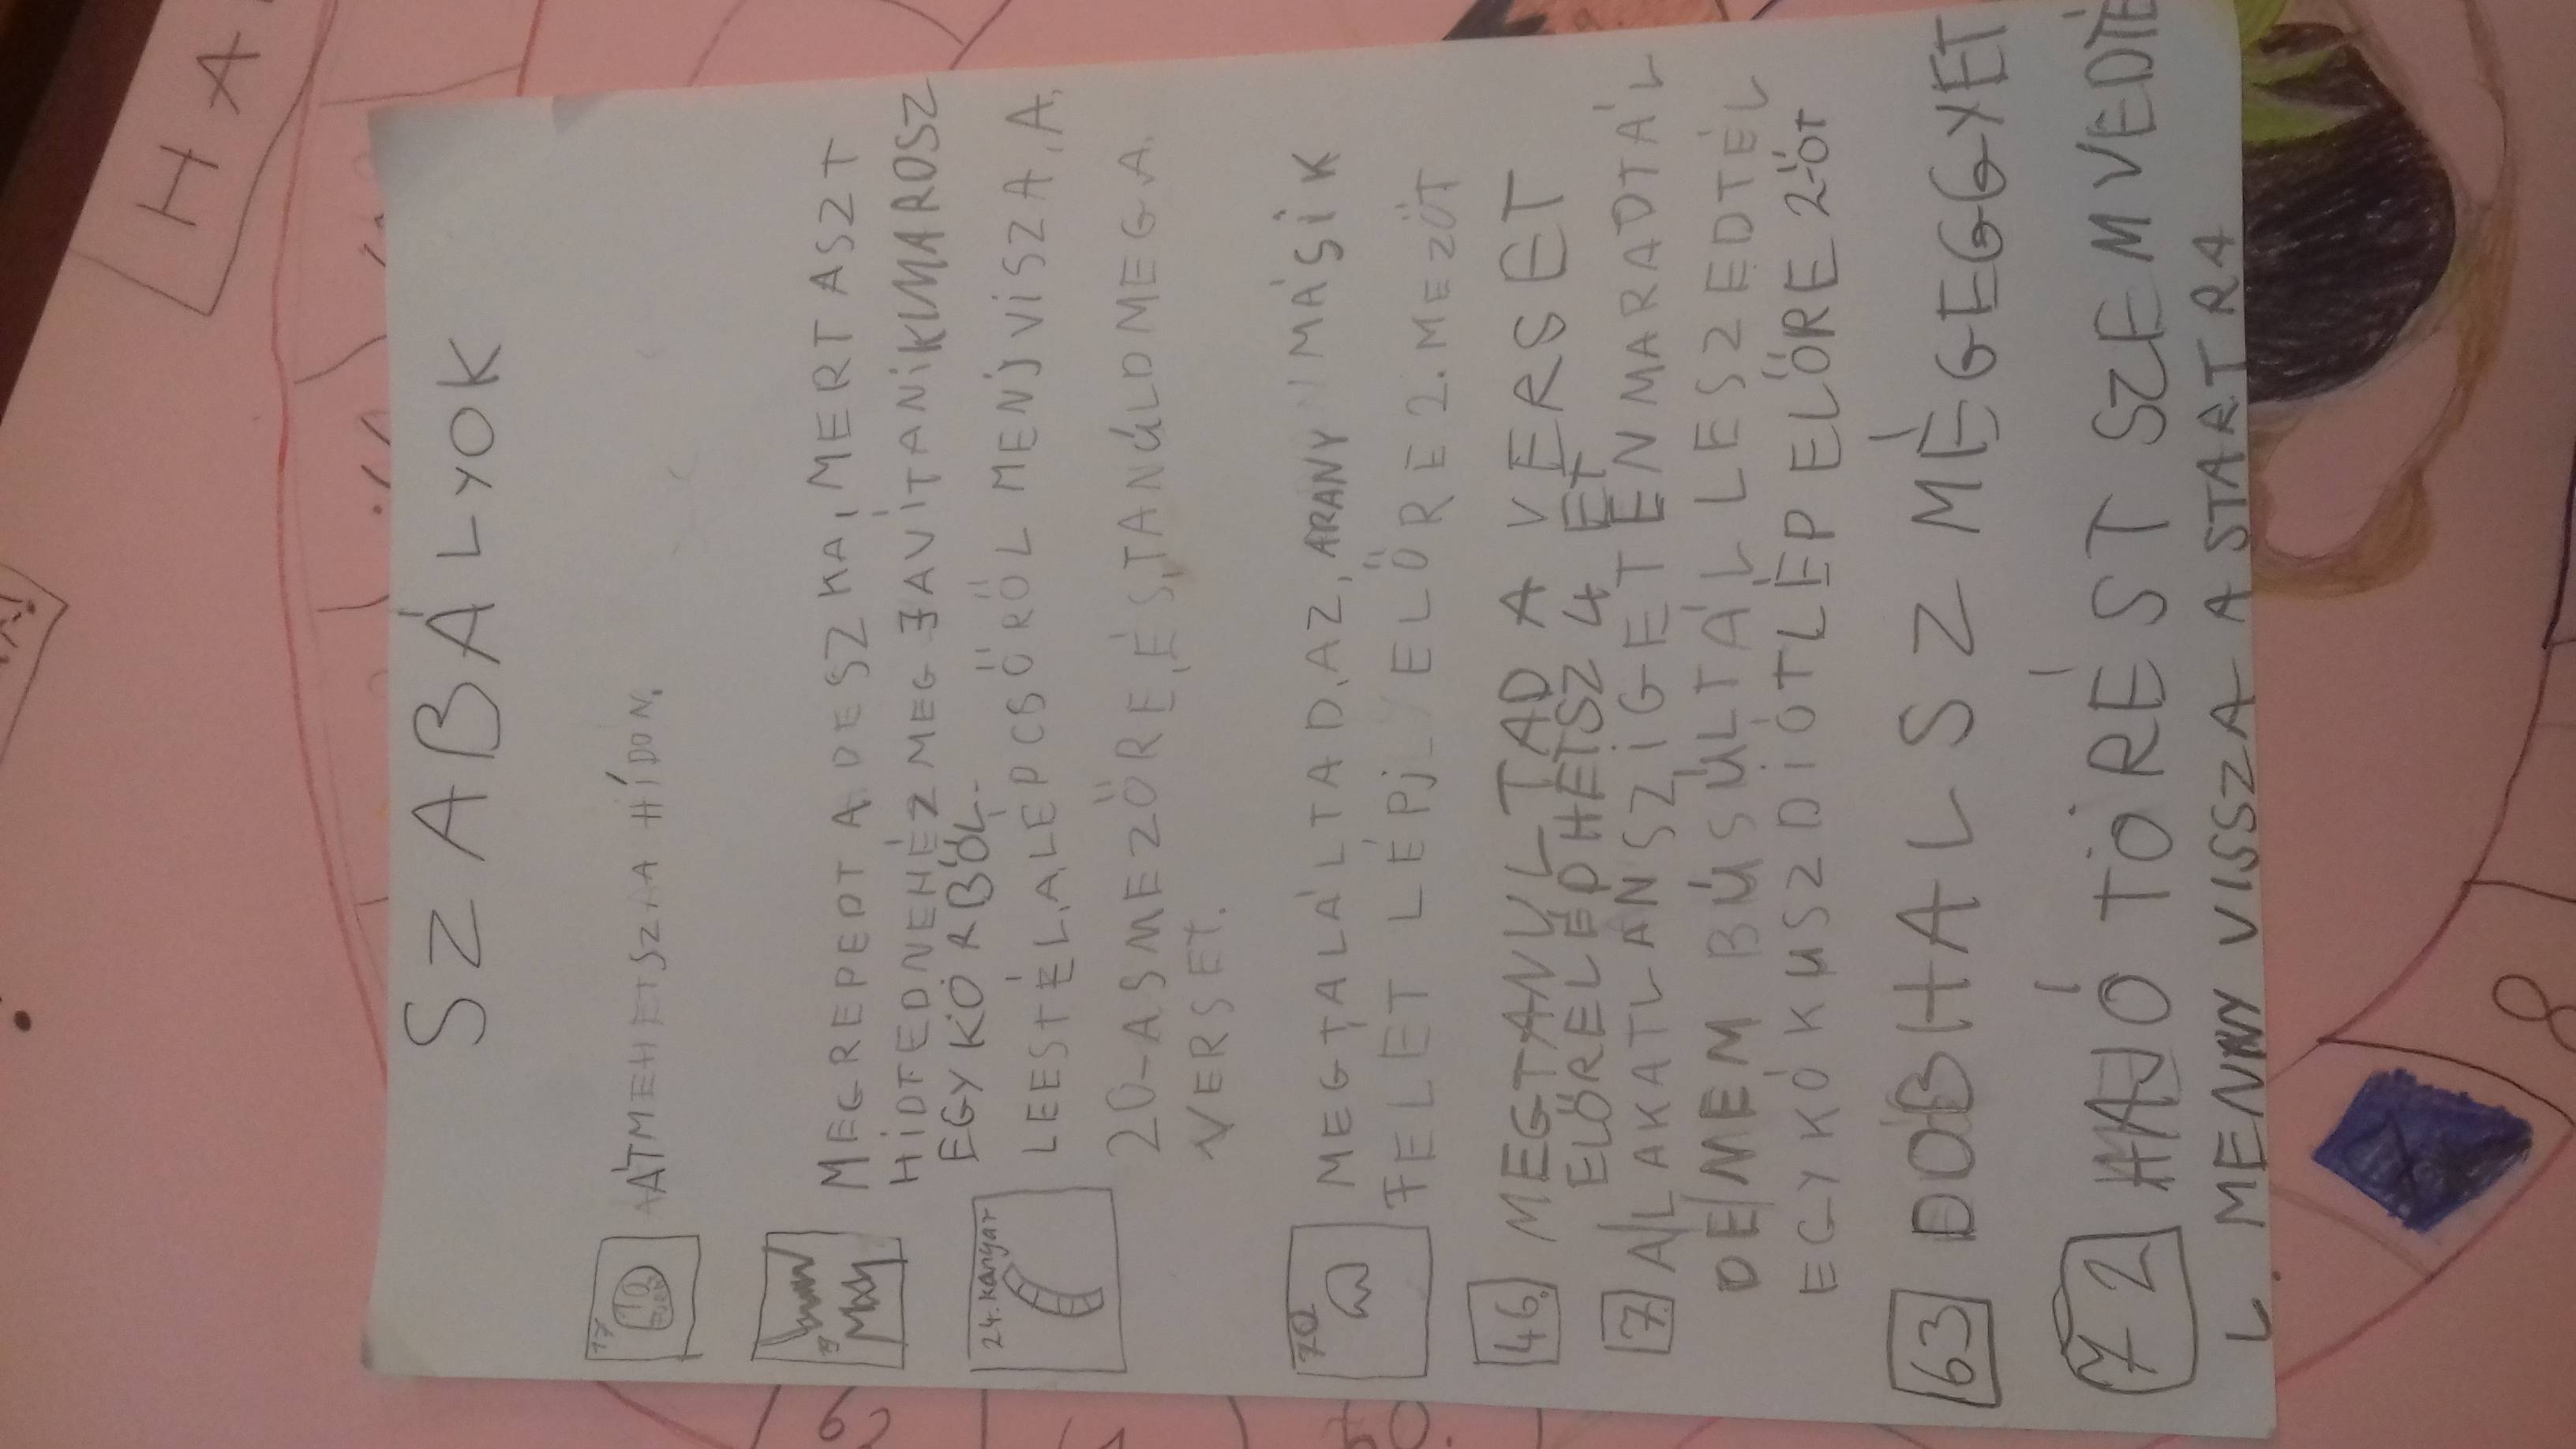 SZABÁLYOK
17
ÁTMEHETSZ A HÍDON.
MEGREPEDT A DESZKA, MERT ASZT
HIDTEDNEHÉZ MEG JAVÍTANI KIMAROSZ
EGY KÖRBŐL.
24. kanyar
LEESTÉL A LÉPCSŐRŐL MENJ VISZA, A,
20-AS MEZŐRE, ÉS, TANÚLD MEG A.
VERSET.
70
MEGTALÁLTAD, AZ, ARANY MÁSIK
FELET LÉPJ ELŐRE 2. MEZŐT
46. MEGTANULTAD A VERSET
ELŐRELÉPHETSZ 4 ET
7. A LAKATLAN SZIGETEN MARADTÁL
DE NEM BÚSÚLTÁL LESZEDTÉL
EGY KÓKUSZDIÓT LÉP ELŐRE 2-ŐT
63 DOBHALSZ MÉGEGGYET
72 HAJÓTÖRÉST SZEMVEDTÉ
L MENNY VISSZA A STARTRA
HA
8